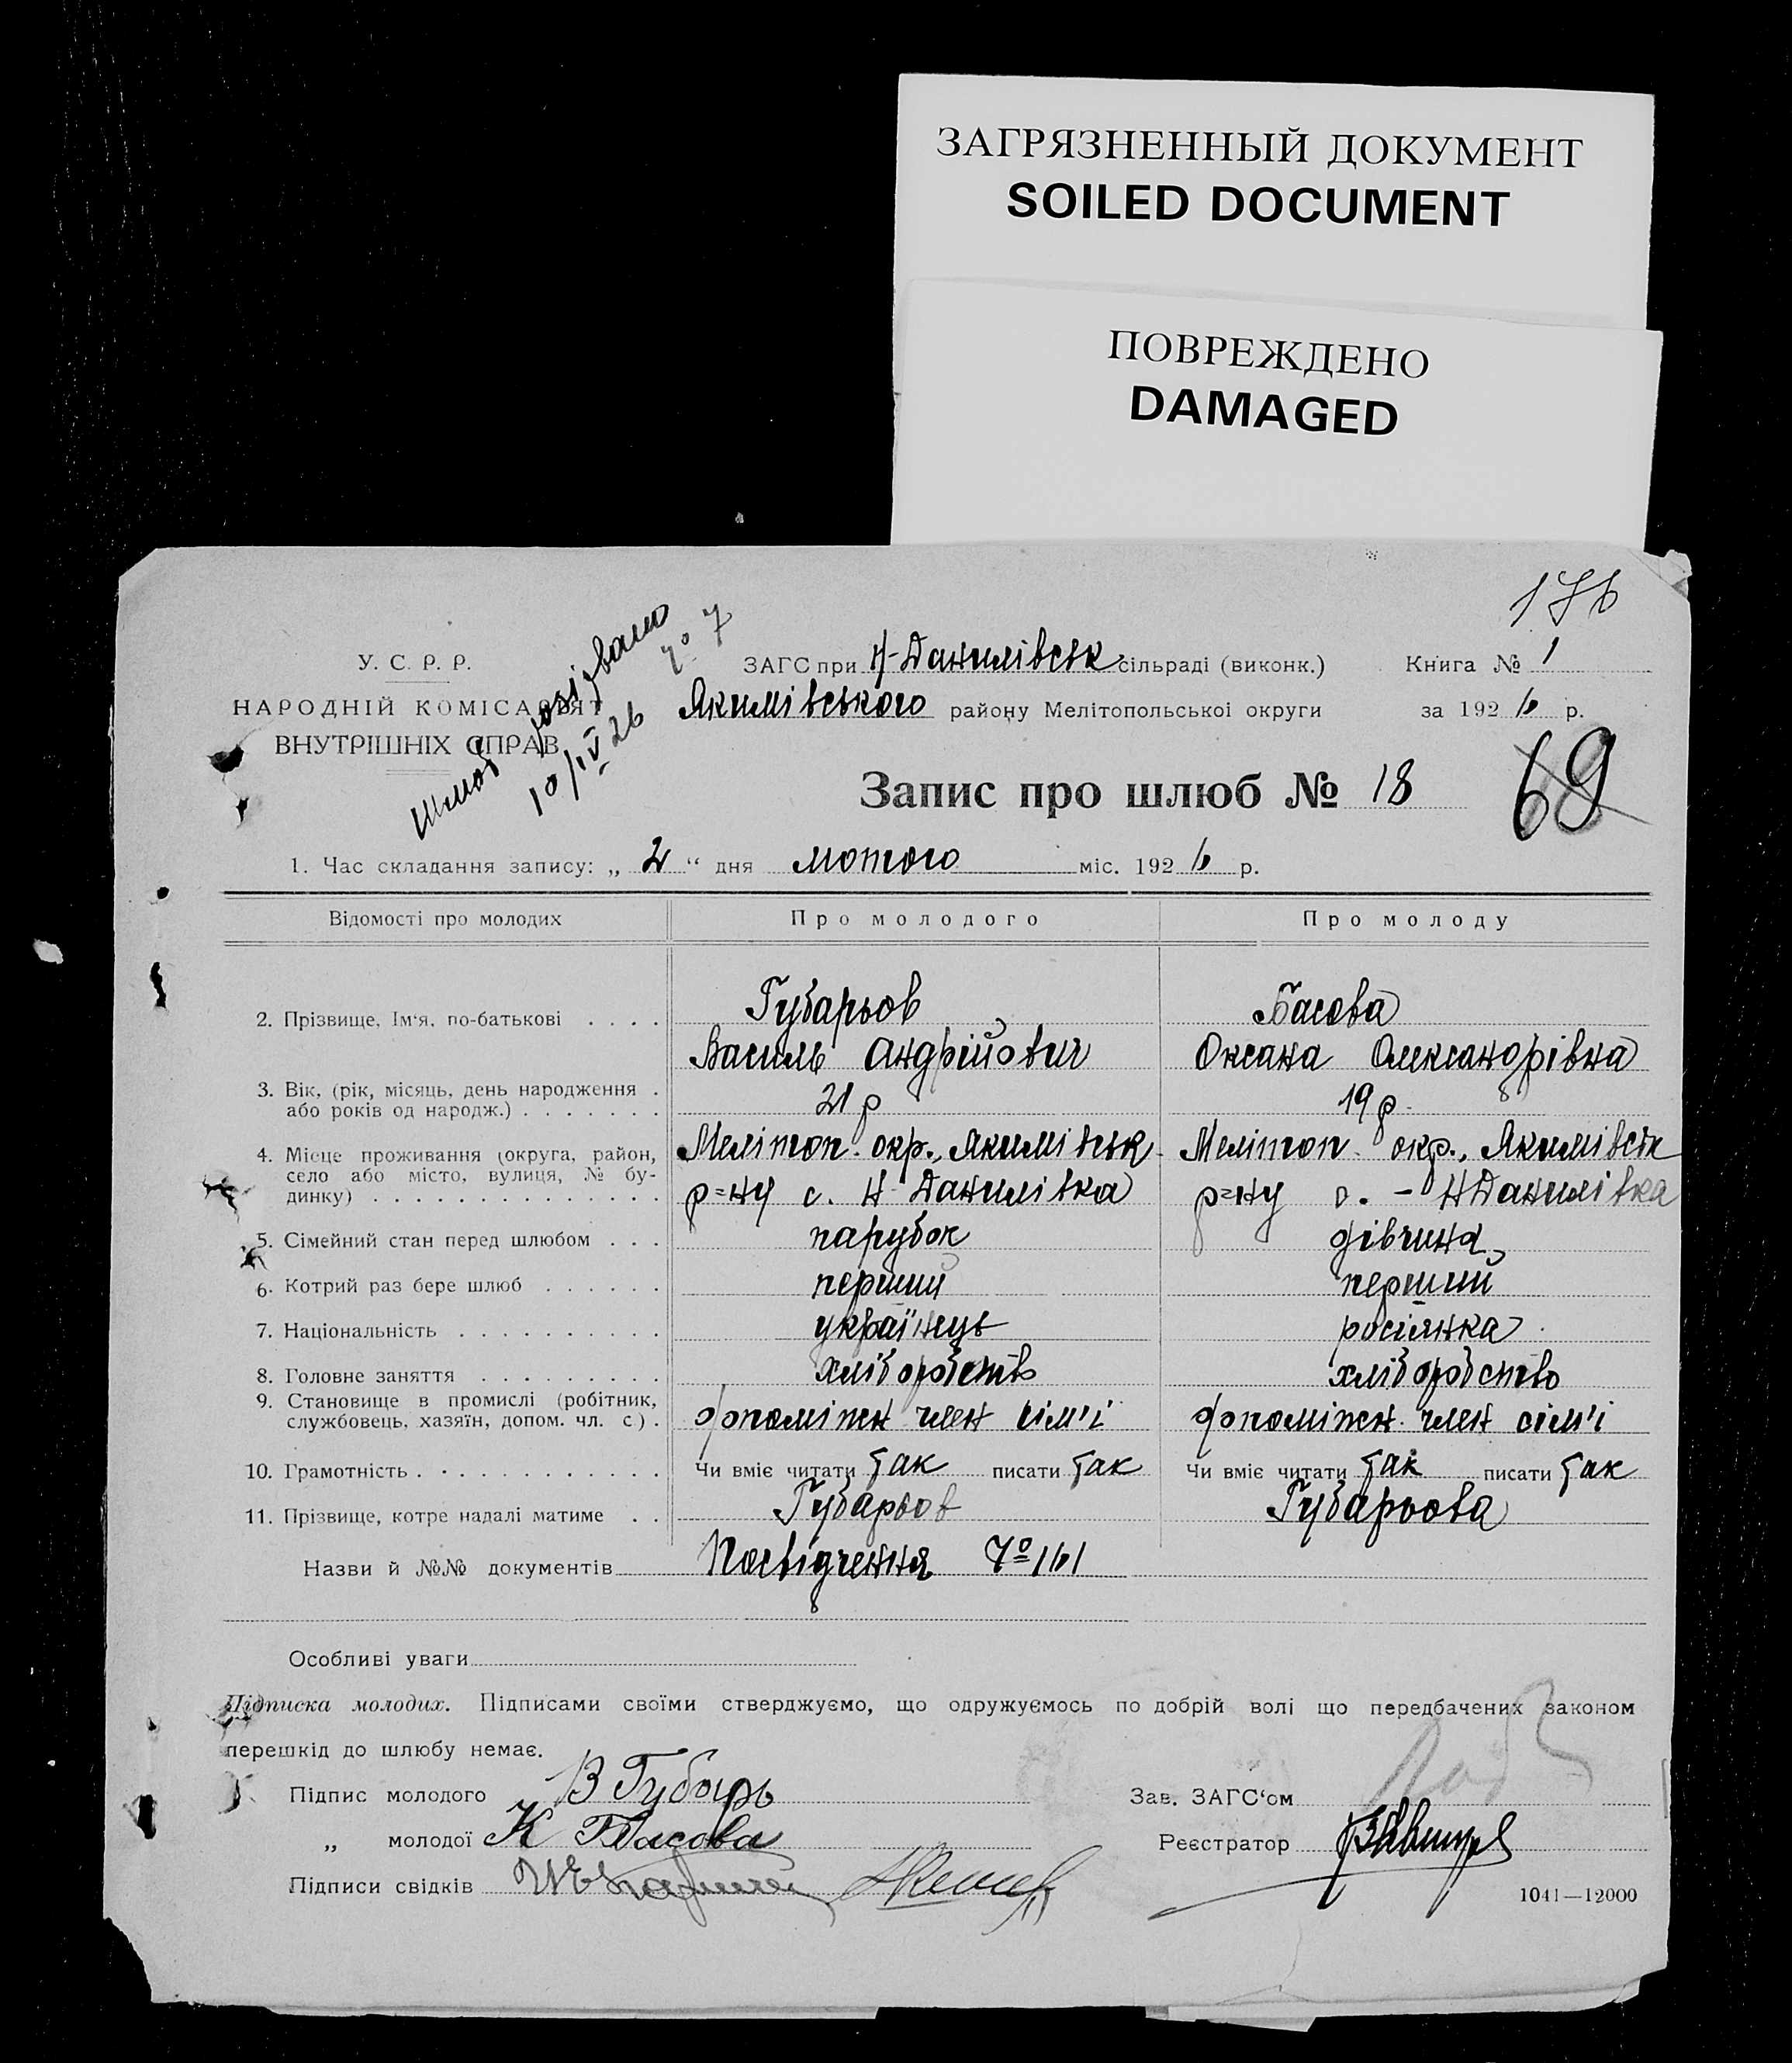 ЗАГРЯЗНЕННЫЙ ДОКУМЕНТ
SOILED DOCUMENT
ПОВРЕЖДЕНО
DAMAGED
176
У. С. Р. Р.
НАРОДНІЙ КОМІСАРІЯТ
ВНУТРІШНІХ СПРАВ
Шлюб
10/IV 26 № 7
ЗАГС при Н-Данилівськ сільраді (виконк.) Книга № 1
Якимівського району Мелітопольскоі округи за 1926 р.
Запис про шлюб № 18
69
1. Час складання запису: „ 2 “ дня лютого міс. 1926 р.
Відомості про молодих Про молодого Про молоду
2. Прізвище, Ім‘я, по-батькові . . . . Губарьов Басова
Василь Андрійович Оксана Олександрівна
3. Вік, (рік, місяць, день народження .
або років од народж.) . . . . . . . 21 р 19 р.
4. Місце проживання (округа, район, Меліт​оп. окр., Якимівськ. Мелітоп. окр., Якимівськ
село або місто, вулиця, № бу-
динку) . . . . . . . . . . . . . . р=ну с. Н-Данилівка р=ну с. – НДанилівка
5. Сімейний стан перед шлюбом . . . парубок дівчина
6. Котрий раз бере шлюб . . . . . . перший перший
7. Національність . . . . . . . . . . українець росіянка
8. Головне заняття . . . . . . . . . хліборобство хліборобство
9. Становище в промислі (робітник,
службовець, хазяїн, допом. чл. с) . допоміжн член сім'ї допоміжн. член сім'ї
10. Грамотність . . . . . . . . . . . . Чи вміє читати так писати так Чи вміє читати так писати так
11. Прізвище, котре надалі матиме . . Губарьов Губарьова
Назви й №№ документів Посвідчення № 161
Особливі уваги
Підписка молодих. Підписами своїми стверджуємо, що одружуємось по добрій волі що передбачених законом
перешкід до шлюбу немає.
Підпис молодого В Губарь Зав. ЗАГС‘ом
„ молодої К Басова Реєстратор
Підписи свідків
1041—12000